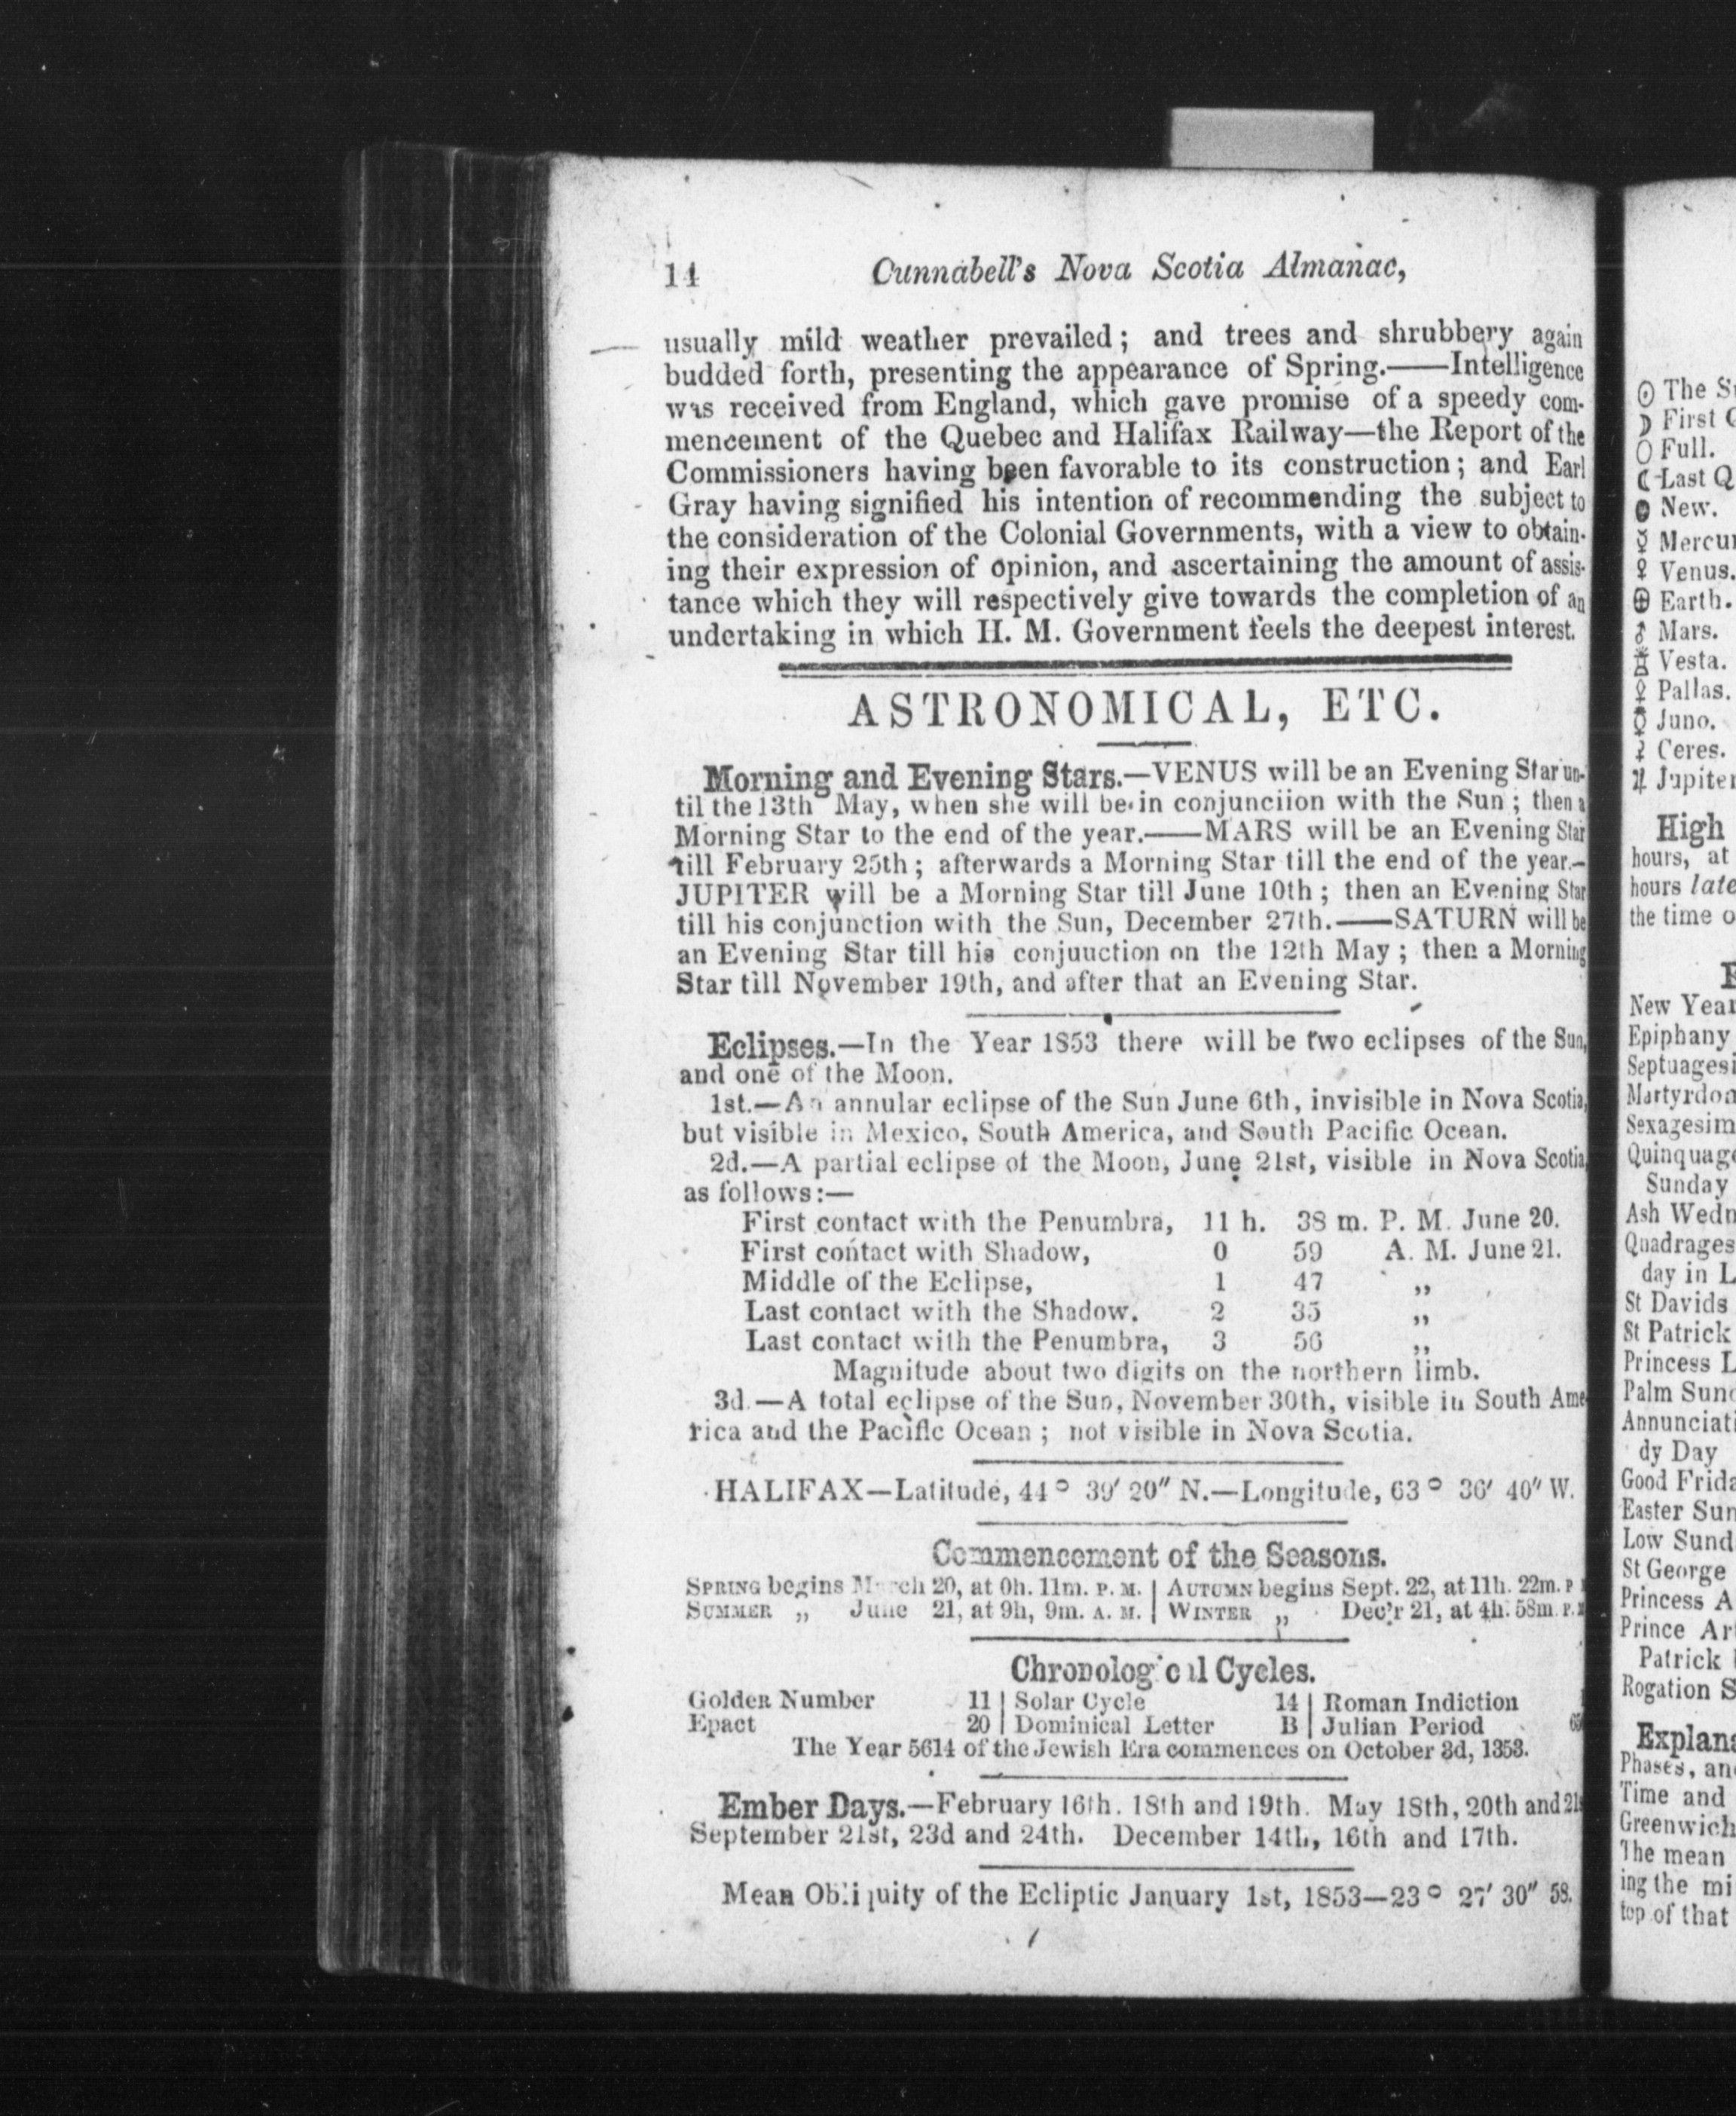 14 Cunnabell's Nova Scotia Almanac,
usually mild weather prevailed; and trees and shrubbery again
budded forth, presenting the appearance of Spring.——Intelligence
was received from England, which gave promise of a speedy com-
mencement of the Quebec and Halifax Railway—the Report of the
Commissioners having been favorable to its construction; and Earl
Gray having signified his intention of recommending the subject to
the consideration of the Colonial Governments, with a view to obtain-
ing their expression of opinion, and ascertaining the amount of assis-
tance which they will respectively give towards the completion of an
undertaking in which H. M. Government feels the deepest interest.
ASTRONOMICAL, ETC.
Morning and Evening Stars.—VENUS will be an Evening Star un-
til the 13th May, when she will be in conjunciion with the Sun; then a
Morning Star to the end of the year.——MARS will be an Evening Star
till February 25th; afterwards a Morning Star till the end of the year.—
JUPITER will be a Morning Star till June 10th; then an Evening Star
till his conjunction with the Sun, December 27th.——SATURN will be
an Evening Star till his conjuuction on the 12th May; then a Morning
Star till November 19th, and after that an Evening Star.
Eclipses.—In the Year 1853 there will be two eclipses of the Sun,
and one of the Moon.
1st.—An annular eclipse of the Sun June 6th, invisible in Nova Scotia,
but visible in Mexico, South America, and South Pacific Ocean.
2d.—A partial eclipse of the Moon, June 21st, visible in Nova Scotia,
as follows:—
First contact with the Penumbra, 11 h. 38 m. P. M. June 20.
First contact with Shadow, 0 59 A. M. June 21.
Middle of the Eclipse, 1 47 „
Last contact with the Shadow, 2 35 „
Last contact with the Penumbra, 3 56 „
Magnitude about two digits on the northern limb.
3d.—A total eclipse of the Sun, November 30th, visible in South Ame-
rica and the Pacific Ocean; not visible in Nova Scotia.
HALIFAX—Latitude, 44° 39′ 20″ N.—Longitude, 63° 36′ 40″ W.
Commencement of the Seasons.
SPRING begins March 20, at 0h. 11m. P. M. | AUTUMN begins Sept. 22, at 11h. 22m. P
SUMMER „ June 21, at 9h, 9m. A. M. | WINTER „ Dec'r 21, at 4h. 58m. P.
Chronological Cycles.
Golden Number 11 | Solar Cycle 14 | Roman Indiction
Epact 20 | Dominical Letter B | Julian Period
The Year 5614 of the Jewish Era commences on October 3d, 1353.
Ember Days.—February 16th. 18th and 19th. May 18th, 20th and 21s
September 21st, 23d and 24th. December 14th, 16th and 17th.
Mean Obliquity of the Ecliptic January 1st, 1853—23° 27′ 30″ 58.
☉ The S
☽ First
○ Full.
☾ Last Q
● New.
☿ Mercu
♀ Venus.
⊕ Earth.
♂ Mars.
Vesta.
Pallas.
Juno.
Ceres.
♃ Jupiter
High
hours, at
hours late
the time o
New Year
Epiphany
Septuagesi
Martyrdom
Sexagesim
Quinquage
Sunday
Ash Wedn
Quadrages
day in L
St Davids
St Patrick
Princess L
Palm Sund
Annunciati
dy Day
Good Frida
Easter Sun
Low Sund
St George
Princess A
Prince Ar
Patrick
Rogation S
Explana
Phases, an
Time and
Greenwich
The mean
ing the mi
top of that